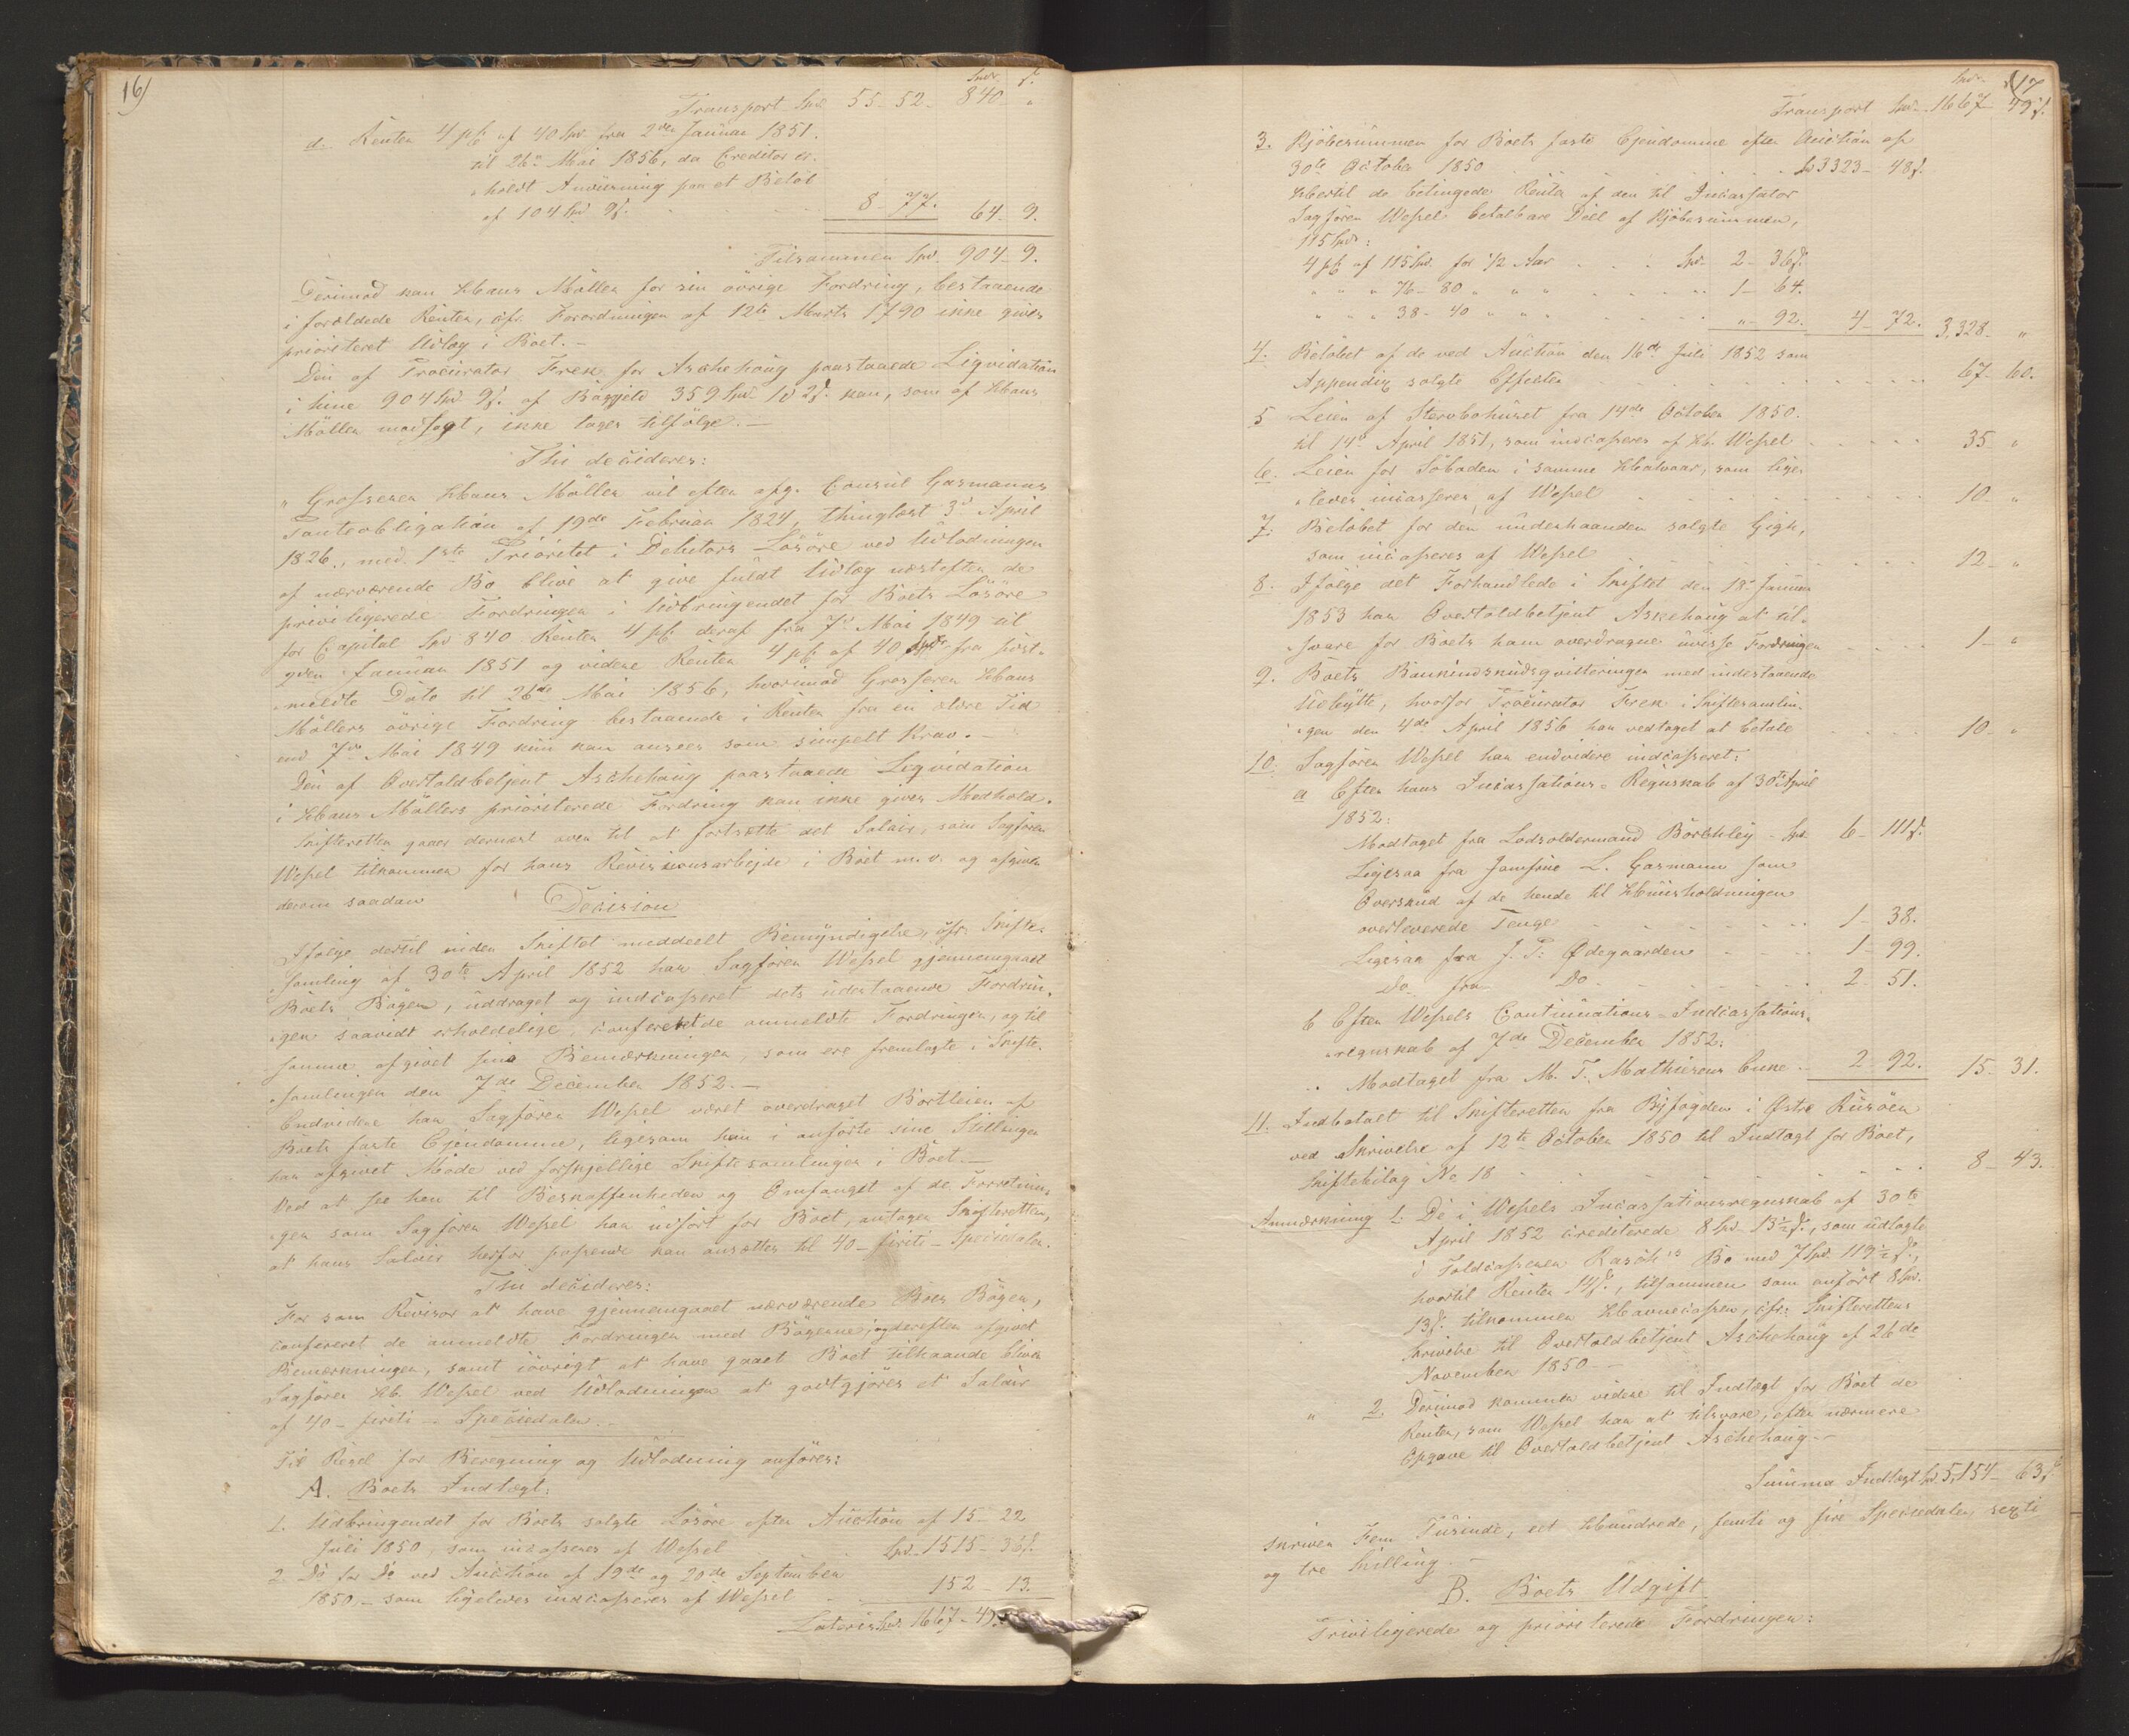 16)
Spd. ſ.
Transport Spd. 55 - 52 - 840 - "
d. Renten 4 pCt. af 40 Spd. fra 2den Januar 1851.
til 26de Mai 1856, da Creditor er-
"holdt Anviisning paa et Beløb
af 104 Spd 9 ſ. . . . . 8 - 77. 64 - 9.
Tilsammen Spd. 904 - 9.
Derimod kan Hans Möller for sin övrige Fordring, bestaaende
i forældede Renter, cfr. Forordningen af 12te Marts 1790 inke gives
prioriteret Udlæg i Boet. -
Den af Procurator Frek for Aschehoug paastaaede Liqvidation
i hine 904 Spd 9 ſ. af Bogjeld 359 Spd. 12 ſ. kan, som af Hans
Möller modsagt, ikke tages tilfölge. -
Thi decideres:
"Grosserer Hans Möller vil efter afg. Consul Gasmanns
Panteobligation af 19de Februar 1824, thinglæst 3d April
1826, med 1ste Prioritet i Debitors Lösöre ved Udlodningen
af nærværende Bo blive at give fuldt Udlæg næstefter de
priviligerede Fordringer i Udbringendet for Boets Lösöre
for Capital Spd 840 Renter 4 pCt. deraf fra 7de Mai 1849 til
2den Januar 1851 og videre Renter 4 pCt. af 40 Spd. fra sidst-
"meldte Dato til 26de Mai 1856, hvorimod Grosserer Hans
Möllers övrige Fordring bestaaende i Renter fra en ældre Tid
end 7de Mai 1849 kun kan ansees som simpelt Krav. -
Den af Overtoldbetjent Aschehoug paastaaede Liqvidation
i Hans Möllers prioriterede Fordring kan inke gives Medhold.
Skifteretten gaaer dernæst over til at fastsætte det Salair, som Sagförer
Wessel tilkommer for hans Revisionsarbejde i Boet m.v. og afgives
derom saadan
Decision
Ifölge dertil inden Skiftet meddeelt Bemyndigelse, cfr. Skifte-
"samling af 30te April 1852 har Sagförer Wessel gjennemgaaet
Boets Böger, uddraget og indcasseret dets udestaaende Fordrin-
"ger saavidt erholdelige, confereret de anmeldte Fordringer, og til
samme afgivet sine Bemærkninger, som ere fremlagte i Skifte-
"samlingen den 7de December 1852. -
Endvidere har Sagförer Wessel været overdraget Bortleien af
Boets faste Ejendomme, ligesom han i anförte sine Stillinger
har afgivet Möde ved forskjellige Skiftesamlinger i Boet. -
Ved at see hen til Beskaffenheden og Omfanget af de Forretnin-
"ger som Sagförer Wessel har udfört for Boet, antager Skifteretten,
at hans Salair herfor passende kan ansættes til 40 - firti - Speciedaler.
Thi decideres:
For som Revisor at have gjennemgaaet nærværende Boes Böger,
confereret de anmeldte Fordringer med Bögerne, og derefter afgivet
Bemærkninger, samt iövrigt at have gaaet Boet tilhaande bliver
Sagförer H. Wessel ved Udlodningen at godtgjöres et Salair
af 40 - firti - Speciedaler. -
Til Regel for Beregning og Udlodning anföres:
A. Boets Indtægt:
1. Udbringendet for Boets solgte Lösöre efter Auction af 15 - 22
Juli 1850, som incasseres af Wessel Spd. 1515 - 36 ſ.
2. Do for Do ved Auction af 19de og 20de September
1850, - som ligeledes incasseres af Wessel . . 152 - 13.
Lateris Spd. 1667 - 49 ſ.
(17
Spd.
Transport Spd. 1667 - 49 ſ.
3. Kjöbesummen for Boets faste Ejendomme efter Auction af
30te October 1850 . . . . Sp 3323 - 48 ſ.
Hertil de betingede Renter af den til Incassator
Sagförer Wessel betalbare Deel af Kjöbesummen,
115 Spd:
4 pCt. af 115 Spd. for 1/2 Aar . . . Spd. 2 - 36 ſ.
" " " 76 - 80 " " " . . . . 1 - 64.
" " " 38 - 40 " " " . . . . " - 92. 4 - 72. 3,328 - "
4. Belöbet af de ved Auction den 16de Juli 1852 som
Appendix solgte Effecter . . . . 67 - 60.
5 Leien af Stervbohuset fra 14de October 1850.
til 14de April 1851, som indcasseres af H. Wessel . . . . 35 - "
6. Leien for Söboden i samme Halvaar, som lige-
"ledes incasseres af Wessel . . . . 10 - "
7. Belöbet for den underhaanden solgte Gigh,
som incasseres af Wessel . . . . 12 - "
8. Ifölge det Forhandlede i Skiftet den 18de Januar
1853 har Overtoldbetjent Askehoug at til-
"svare for Boets ham overdragne uvisse Fordringer . . . . 1 - "
9. Boets Bankindskudsqvitteringer med indestaaende
Udbytte, hvorfor Procurator Frek i Skiftesamlin-
"gen den 4de April 1856 har vedtaget at betale . . . . 10 - "
10. Sagförer Wessel har endvidere indcasseret:
a Efter hans Incassations-Regnskab af 30te April
1852:
Modtaget fra Lodsoldermand Börchley - Spd. 6 - 111 ſ.
Ligesaa fra Jomfrue L. Gasmann som
Overskud af de hende til Huusholdningen
overleverede Penge . . . . 1 - 38.
Ligesaa fra J. P. Ødegaarden . . . . 1 - 99.
Do fra Do . . . . 2 - 51.
b Efter Wessels Continuations-Indcassations-
"regnskab af 7de December 1852:
Modtaget fra M. T. Mathiesens Enke . . 2 - 92. 15 - 31.
11. Indbetalt til Skifteretten fra Byfogden i Østre Riisöer
ved Skrivelse af 12te October 1850 til Indtægt for Boet,
Skiftebilag No 18 . . . . 8 - 43.
Anmærkning 1. De i Wessels Incassationsregnskab af 30te
April 1852 crediterede 8 Spd. 13½ ſ., som udlagte
i Toldcasserer Raschs Bo med 7 Spd. 119½ ſ.,
hvortil Renter 14 ſ., tilsammen som anfört 8 Spd.
13 ſ. tilkommer Havnecassen, cfr. Skifterettens
Skrivelse til Overtoldbetjent Aschehoug af 26de
November 1850. -
" 2. Derimod kommer videre til Indtægt for Boet de
Renter, som Wessel har at tilsvare, efter nærmere
Opgave til Overtoldbetjent Aschehoug. -
Summa Indtægt Sp. 5,154 - 63 ſ.
skriver Fem Tusinde, eet Hundrede, femti og fire Speciedaler, sexti
og tre Skilling. -
B. Boets Udgift
Priviligerede og prioriterede Fordringer: